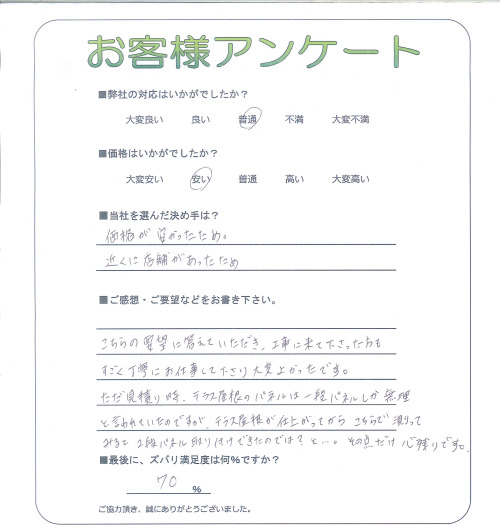 お客様アンケート
■弊社の対応はいかがでしたか？
大変良い 良い 普通 不満 大変不満
■価格はいかがでしたか？
大変安い 安い 普通 高い 大変高い
■当社を選んだ決め手は？
価格が安かったため。
近くに店舗があったため
■ご感想・ご要望などをお書き下さい。
こちらの要望に答えていただき、工事に来て下さった方も
すごく丁寧にお仕事して下さり大変よかったです。
ただ見積り時、テラス屋根のパネルは一段パネルしか無理
と言われていたのですが、テラス屋根が仕上がってから こちらで測って
みると 2段パネル取り付けできたのでは？と…。その点だけ心残りです。
■最後に、ズバリ満足度は何%ですか？
70 %
ご協力頂き、誠にありがとうございました。